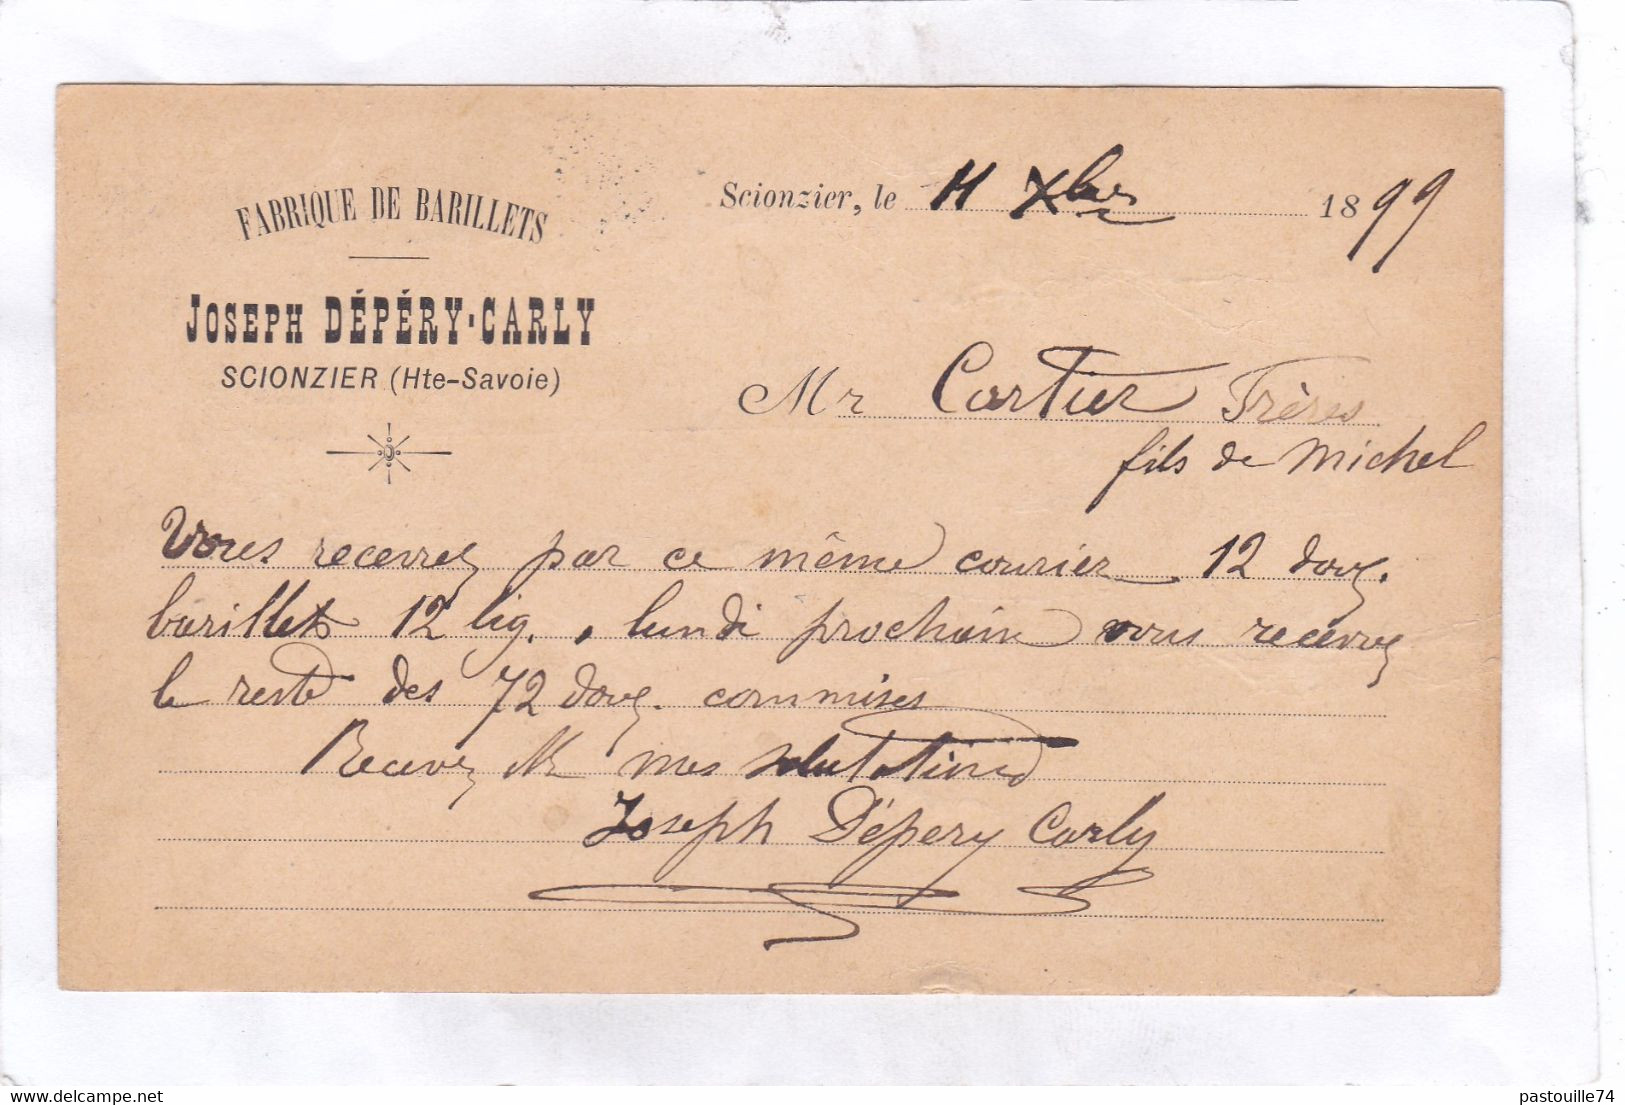 FABRIQUE DE BARILLETS
JOSEPH DÉPÉRY-CARLY
SCIONZIER (Hte-Savoie)
Scionzier, le 11 Xbre 1899
Mr Cartier Frères
fils de Michel
Vous recevrez par ce même courrier 12 douz.
barillets 12 lig. , lundi prochain vous recevrez
le reste des 72 douz. commises
Recevez Mr mes salutations
Joseph Dépery Carly
www.delcampe.net
pastouille74